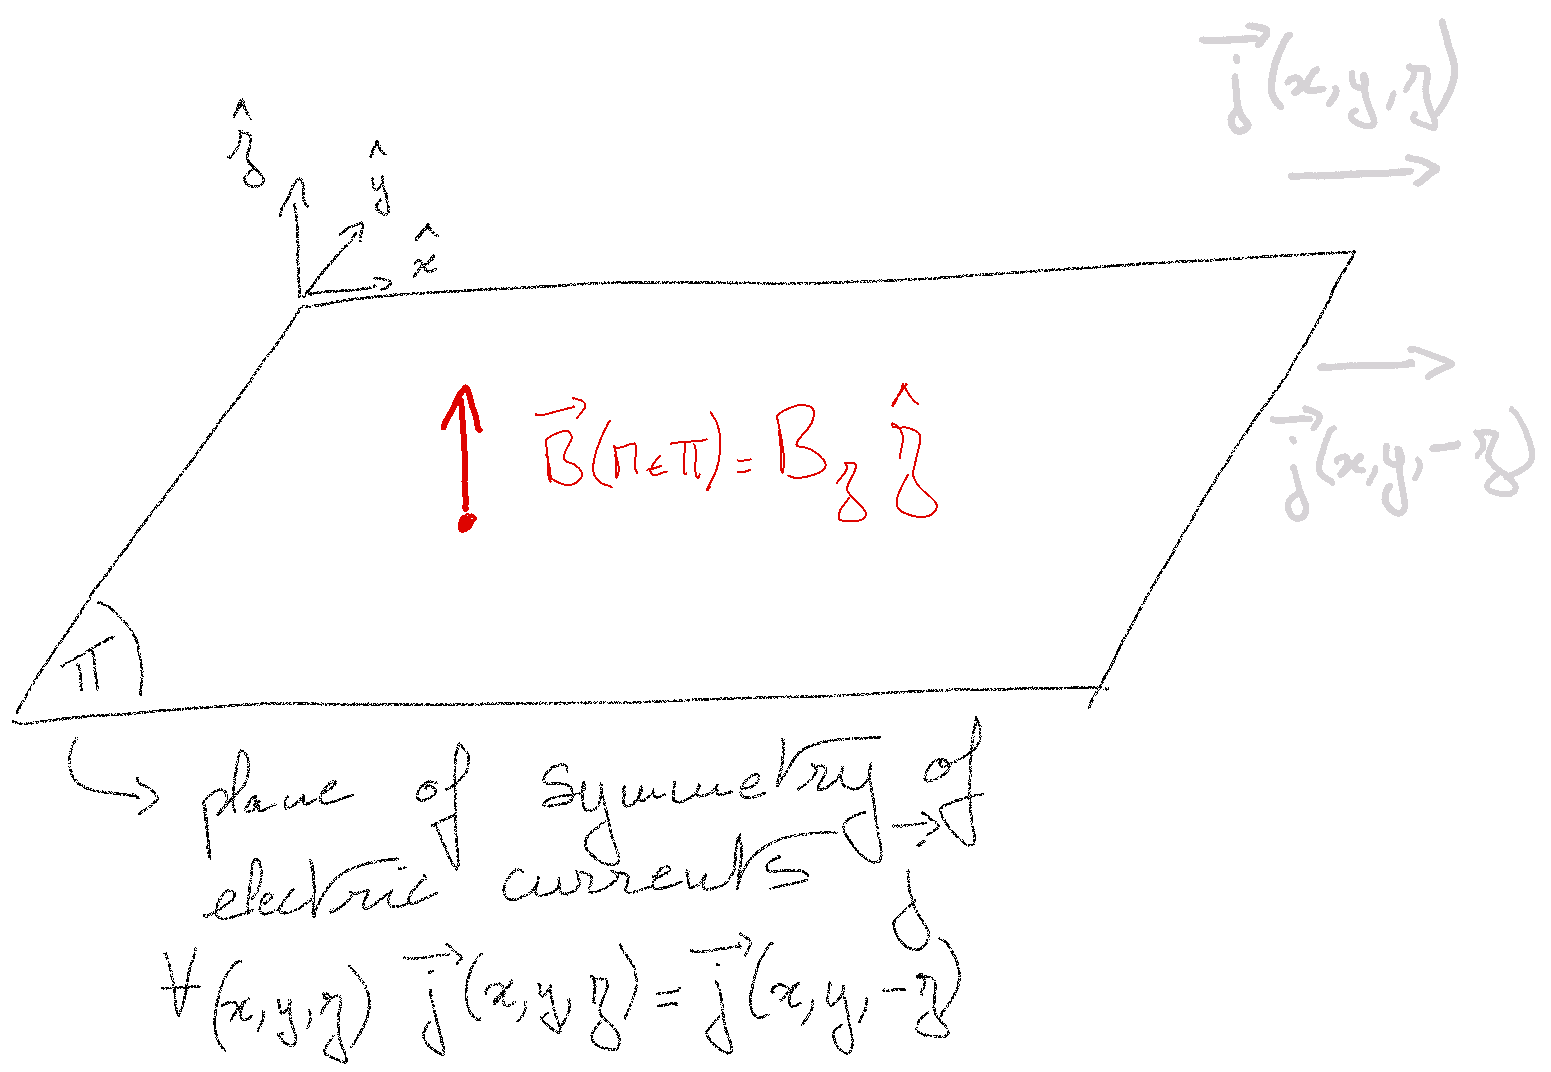 j⃗(x, y, z)
ẑ
ŷ
x̂
B⃗(M∈π) = B_z ẑ
j⃗(x, y, -z)
π
plane of symmetry of
electric currents j⃗
∀(x,y,z) j⃗(x,y,z) = j⃗(x,y,-z)